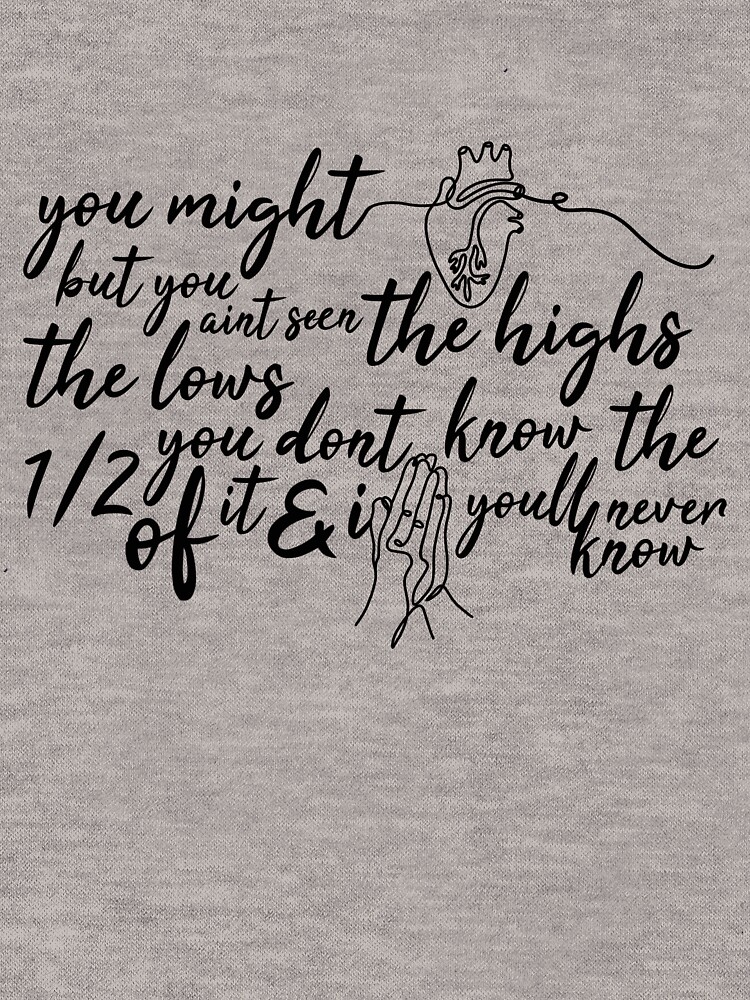 you might
but you
aint seen the highs
the lows
you dont know the
1/2 of it & i youll never
know